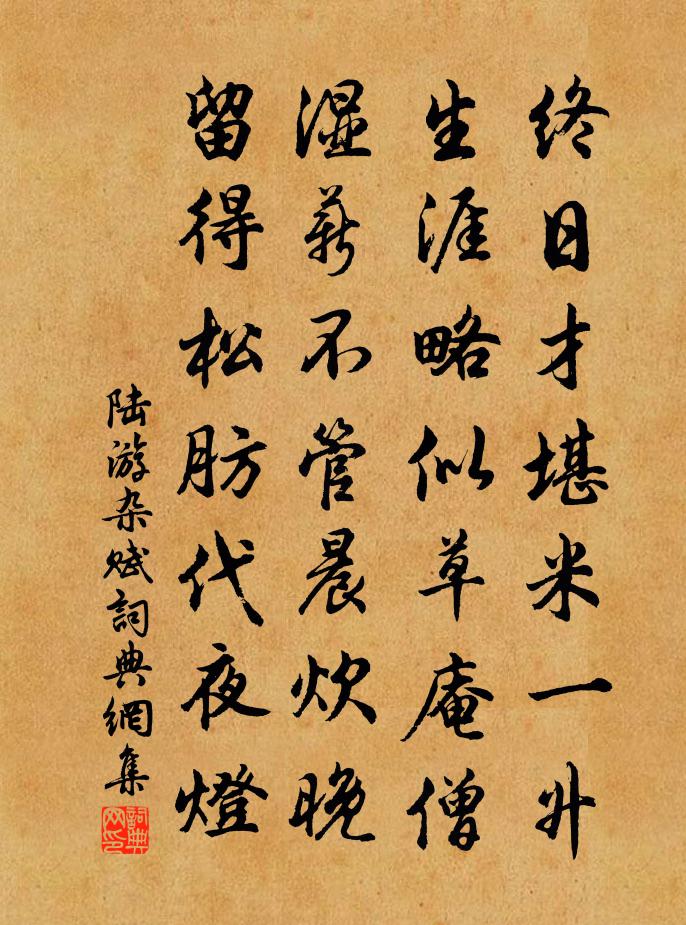 终日才堪米一升
生涯略似草庵僧
湿薪不管晨炊晚
留得松肪代夜燈
陆游杂赋詞典網集
詞典网印